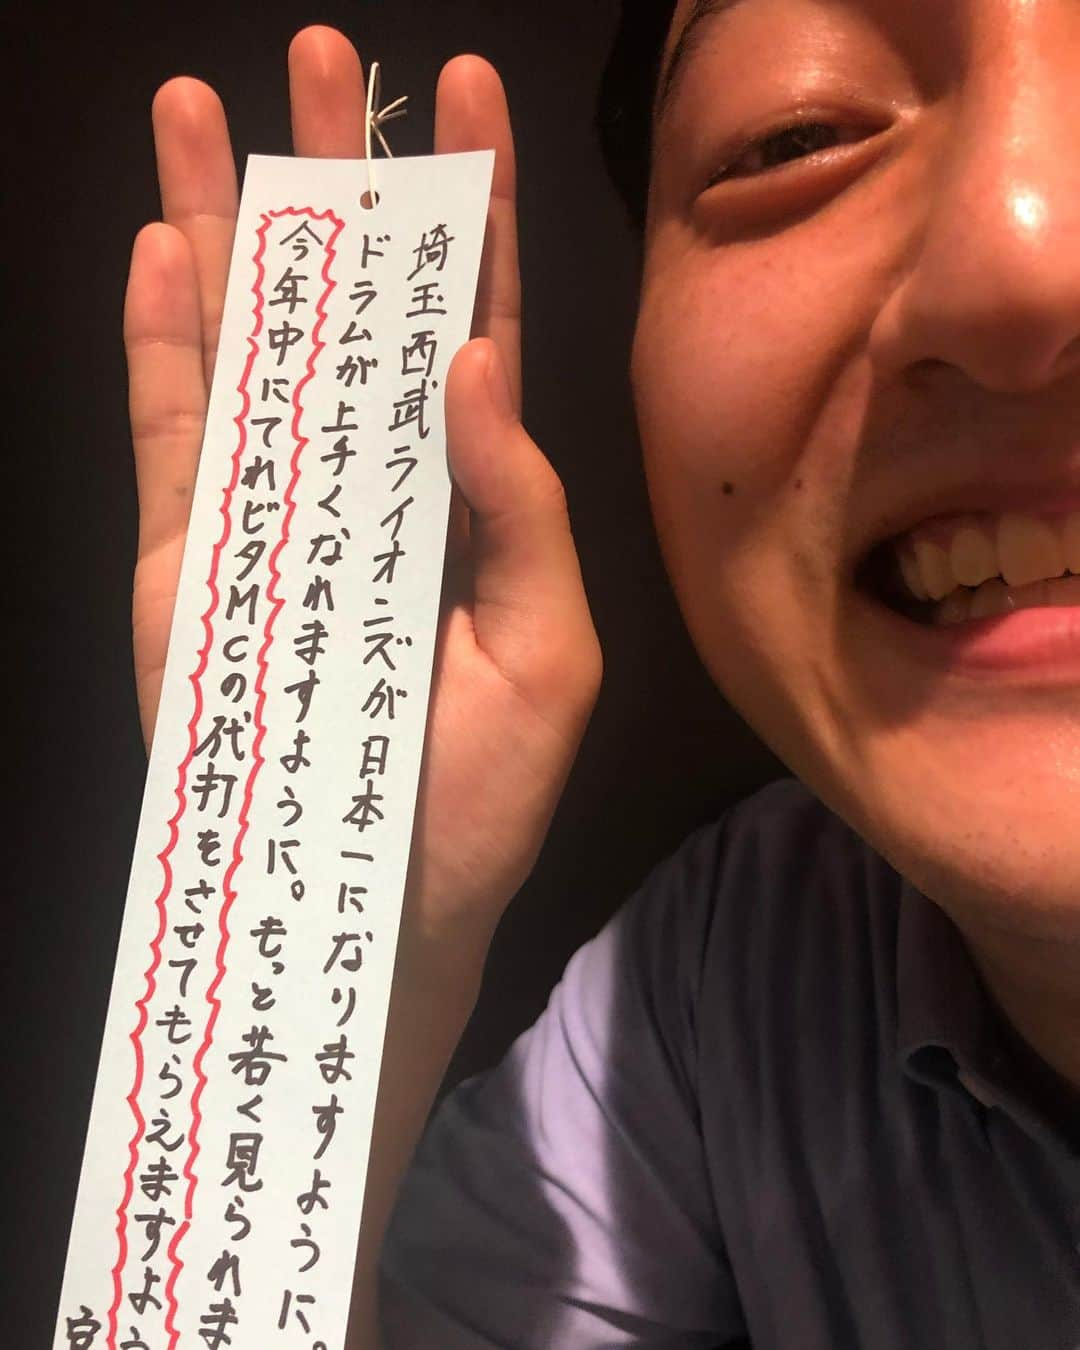 埼玉西武ライオンズが日本一になりますように。
ドラムが上手くなれますように。もっと若く見られま
今年中にてれビタMCの代打をさせてもらえますよう